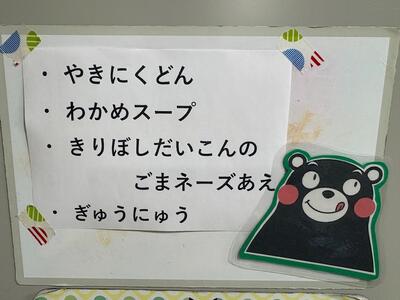 ・やきにくどん
・わかめスープ
・きりぼしだいこんの
ごまネーズあえ
・ぎゅうにゅう